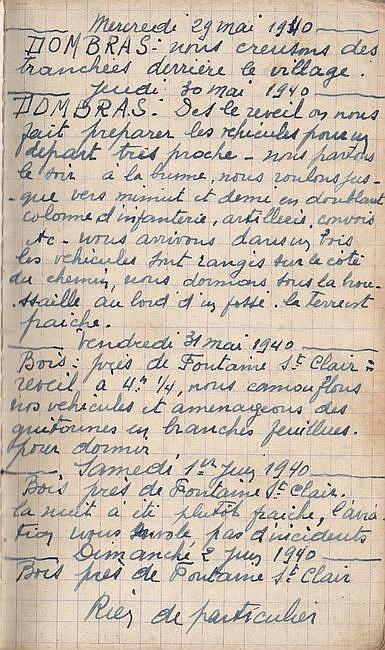 Mercredi 29 mai 1940
DOMBRAS: nous creusons des
tranchées derrière le village.
Jeudi 30 mai 1940
DOMBRAS: Des le reveil on nous
fait préparer les véhicules pour un
départ très proche - nous partons
le soir à la brume, nous roulons jus-
-que vers minuit et demi en doublant
colonne d'infanterie, artillerie, convois
etc - nous arrivons dans un bois
les véhicules sont rangés sur le côté
du chemin, nous dormons sous la brou-
-ssaille au bord d'un fossé. la terre est
fraiche.
Vendredi 31 mai 1940
Bois: près de Fontaine St Clair =
reveil a 4h 1/4, nous camouflons
nos véhicules et aménageons des
guitounes en branches feuillues.
pour dormir
Samedi 1er Juin 1940
Bois près de Fontaine St Clair.
la nuit a été plutôt fraiche, l'avia
tion nous survole pas d'incidents
Dimanche 2 Juin 1940
Bois près de Fontaine St Clair
Rien de particulier